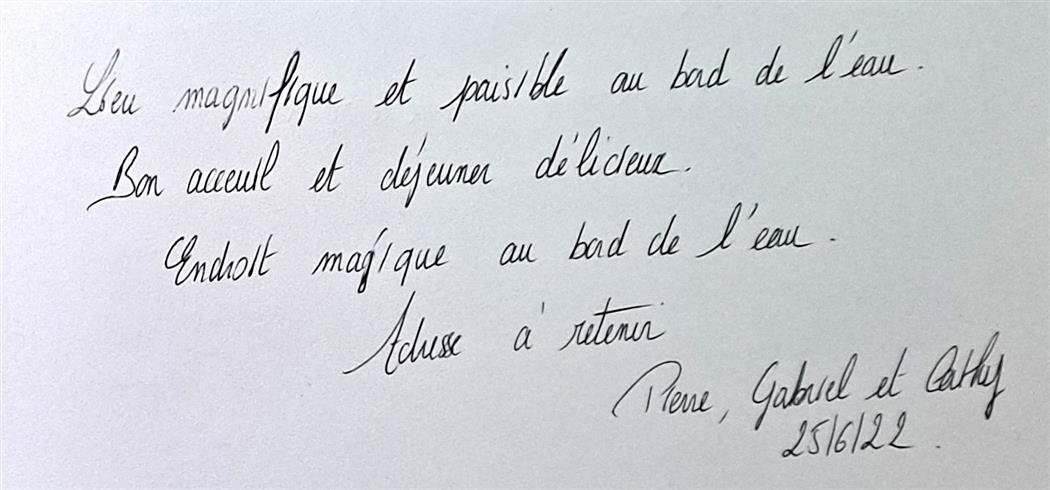 Lieu magnifique et paisible au bord de l'eau.
Bon acceuil et déjeuner délicieux.
Endroit magique au bord de l'eau.
Adresse à retenir
Pierre, Gabriel et Cathy
25/6/22.